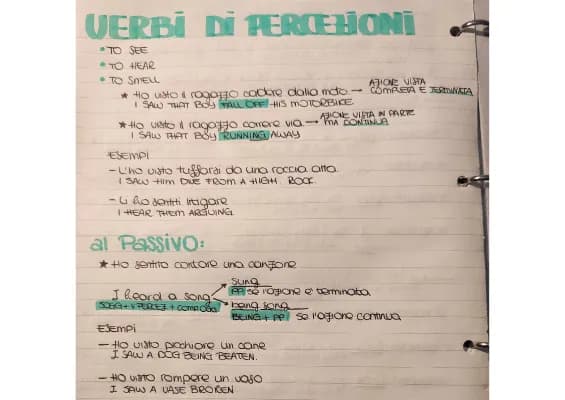 VERBI DI PERCEZIONI
• TO SEE
• TO HEAR
• TO SMELL
★ Ho visto il ragazzo cadere dalla moto → AZIONE VISTA COMPLETA E TERMINATA
I SAW THAT BOY FALL OFF HIS MOTORBIKE
★ Ho visto il ragazzo correre via → AZIONE VISTA IN PARTE MA CONTINUA
I SAW THAT BOY RUNNING AWAY
ESEMPI
– L'ho visto tuffarsi da una roccia alta
I SAW HIM DIVE FROM A HIGH ROCK
– Li ho sentiti litigare
I HEAR THEM ARGUING
al PASSIVO:
★ Ho sentito cantare una canzone
I heard a song
SOGG + V PERCEZ + COMP OGG
sung
PP se l'azione è terminata
being song
BEING + PP se l'azione continua
ESEMPI
– Ho visto picchiare un cane
I SAW A DOG BEING BEATEN.
– Ho visto rompere un vaso
I SAW A VASE BROKEN